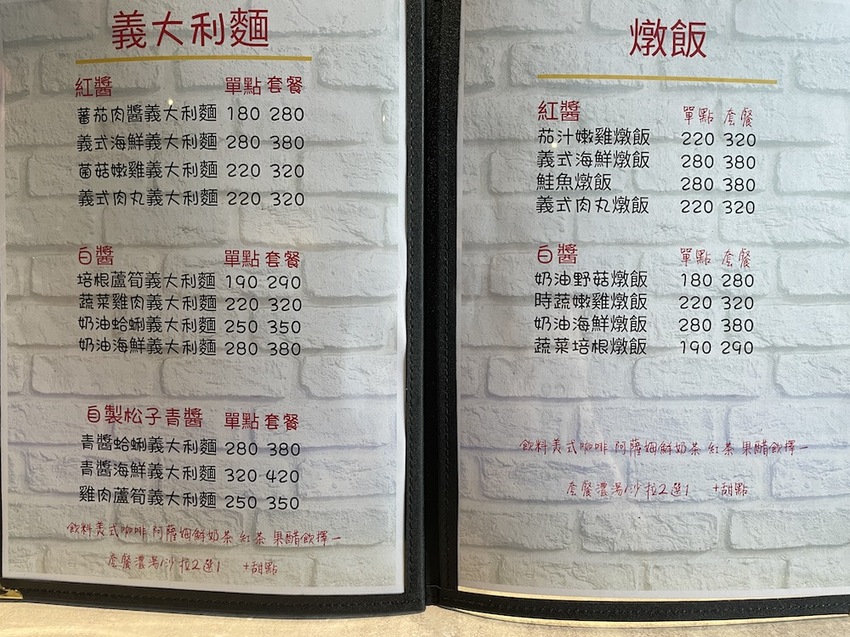 義大利麵
紅醬 單點 套餐
蕃茄肉醬義大利麵 180 280
義式海鮮義大利麵 280 380
菌菇嫩雞義大利麵 220 320
義式肉丸義大利麵 220 320
白醬 單點 套餐
培根蘆筍義大利麵 190 290
蔬菜雞肉義大利麵 220 320
奶油蛤蜊義大利麵 250 350
奶油海鮮義大利麵 280 380
自製松子青醬 單點 套餐
青醬蛤蜊義大利麵 280 380
青醬海鮮義大利麵 320 420
雞肉蘆筍義大利麵 250 350
飲料美式咖啡 阿薩姆鮮奶茶 紅茶 果醋飲擇一
套餐濃湯/沙拉2選1 +甜點
燉飯
紅醬 單點 套餐
茄汁嫩雞燉飯 220 320
義式海鮮燉飯 280 380
鮭魚燉飯 280 380
義式肉丸燉飯 220 320
白醬 單點 套餐
奶油野菇燉飯 180 280
時蔬嫩雞燉飯 220 320
奶油海鮮燉飯 280 380
蔬菜培根燉飯 190 290
飲料美式咖啡 阿薩姆鮮奶茶 紅茶 果醋飲擇一
套餐濃湯/沙拉2選1 +甜點